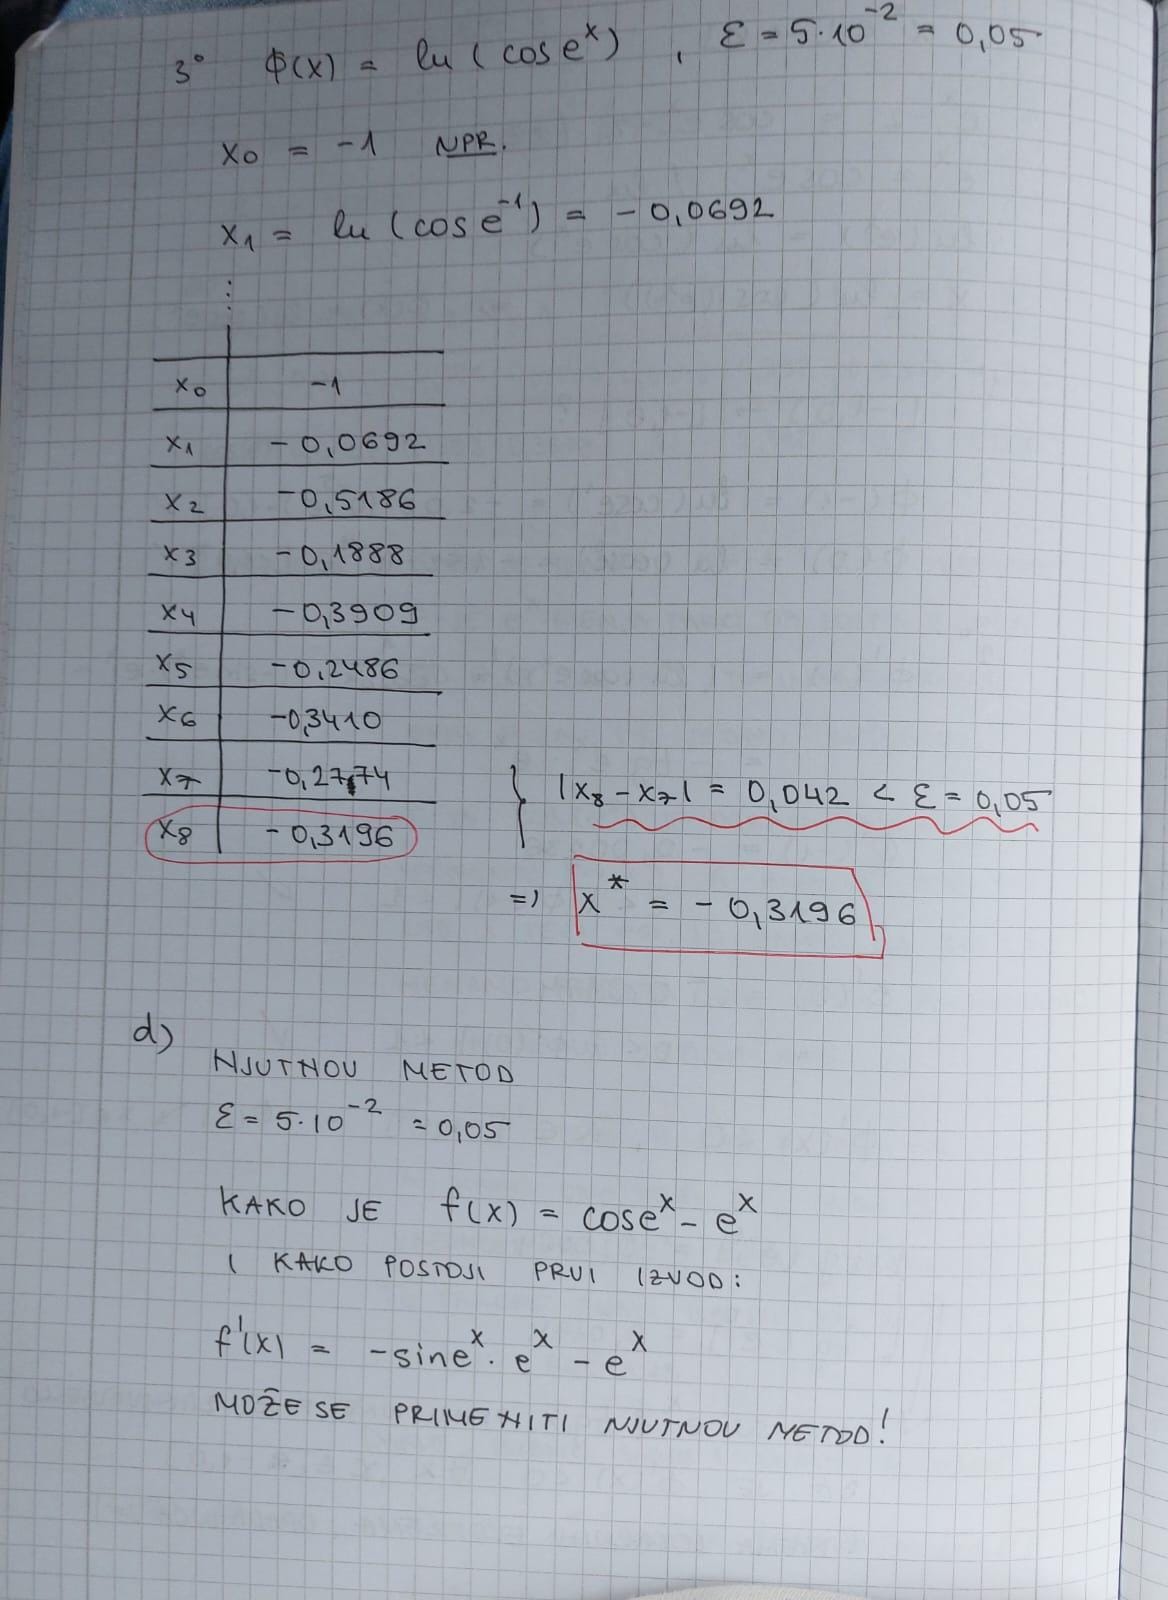 3° ϕ(x) = ln (cos e^x) , ε = 5·10^-2 = 0,05
x0 = -1 NPR.
x1 = ln (cos e^-1) = -0,0692
⋮
x0 | -1
x1 | -0,0692
x2 | -0,5186
x3 | -0,1888
x4 | -0,3909
x5 | -0,2486
x6 | -0,3410
x7 | -0,2774
x8 | -0,3196
} |x8 - x7| = 0,042 < ε = 0,05
=> x* = -0,3196
d)
NJUTNOV METOD
ε = 5·10^-2 = 0,05
KAKO JE f(x) = cos e^x - e^x
I KAKO POSTOJI PRVI IZVOD:
f'(x) = -sin e^x · e^x - e^x
MOŽE SE PRIMENITI NJUTNOV METOD!